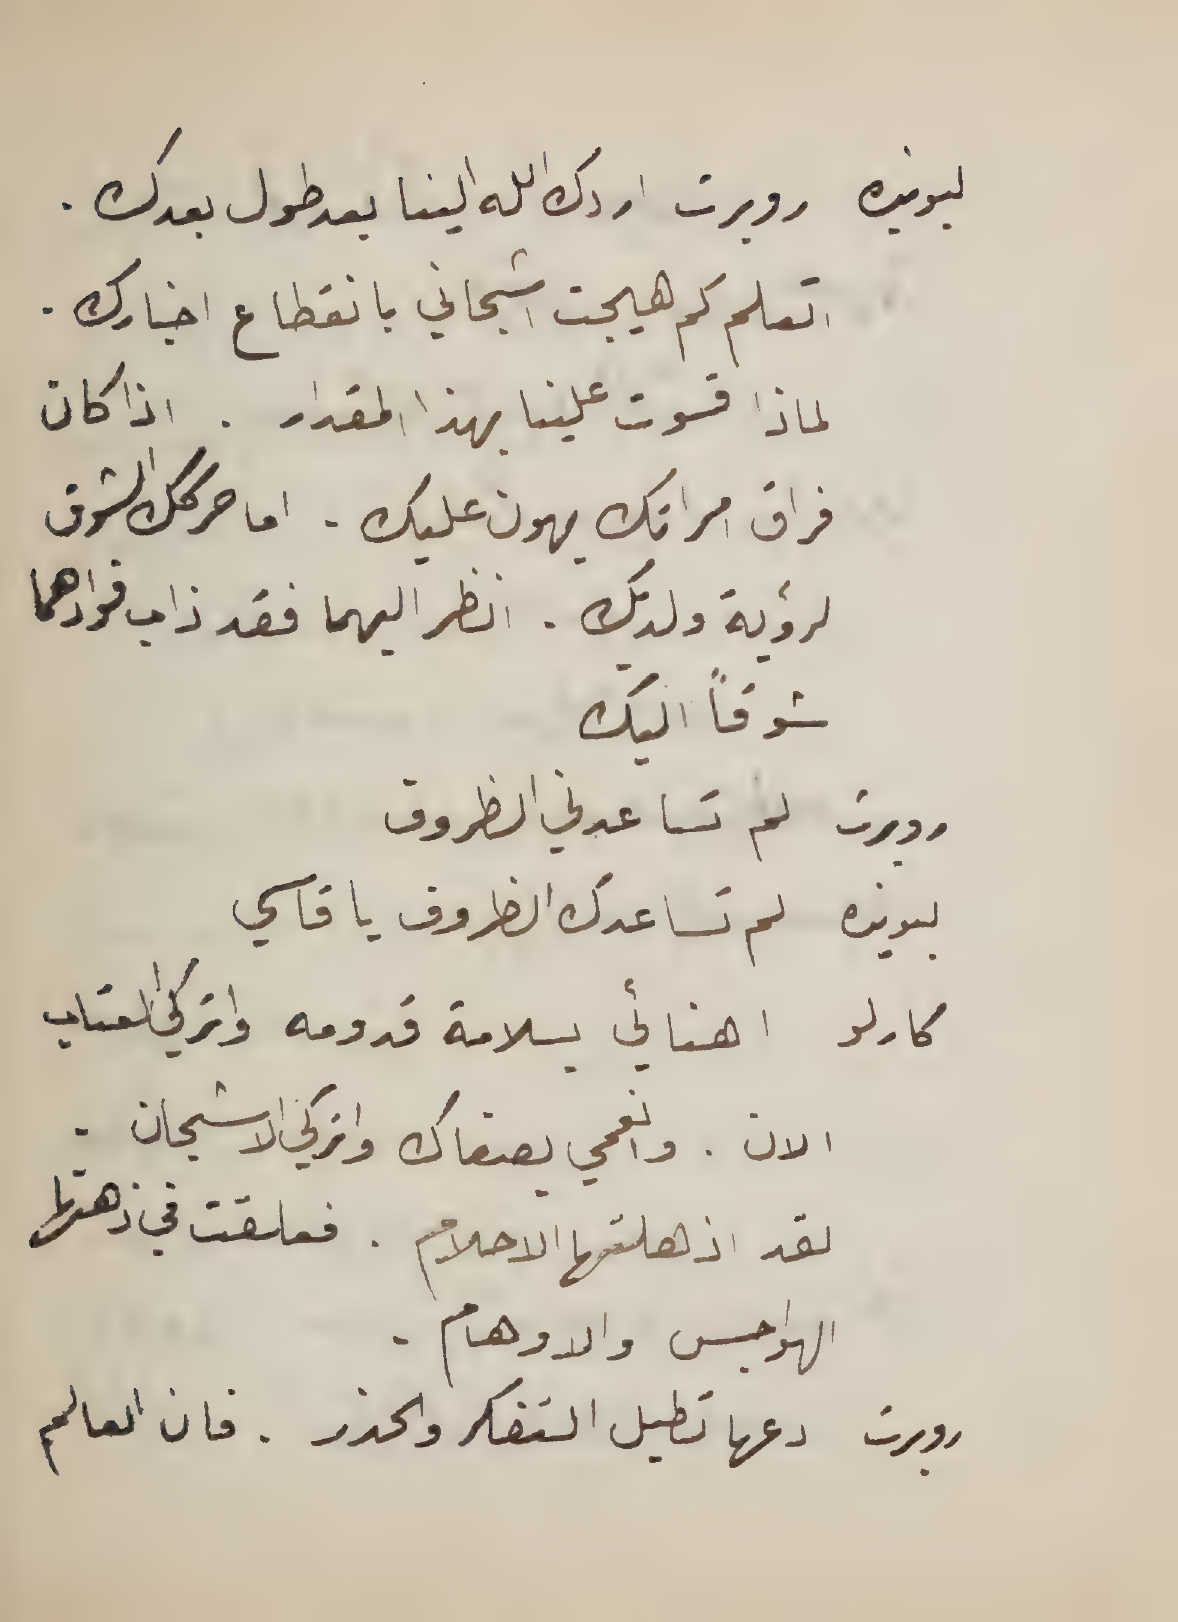 ليونيده روبرت اردك الله الينا بعد طول بعدك .
اتعلم كم هيجت اشجاني بانقطاع اخبارك .
لماذا قسوت علينا بهذا المقدار . اذا كان
فراق امراتك يهون عليك . اما حركك الشوق
لرؤية ولديك . انظر اليهما فقد ذاب فوادهما
شوقاً اليك
روبرت لم تساعدني الظروف
ليونيده لم تساعدك الظروف يا قاسي
كارلو اهنائي بسلامة قدومه واتركي العتاب
الان . وانعمي بصفاك واتركي الاشجان .
لقد اذهلتها الاحلام . فعلقت في ذهنها
الهواجس والاوهام .
روبرت دعها تطيل التفكر والحذر . فان العالم